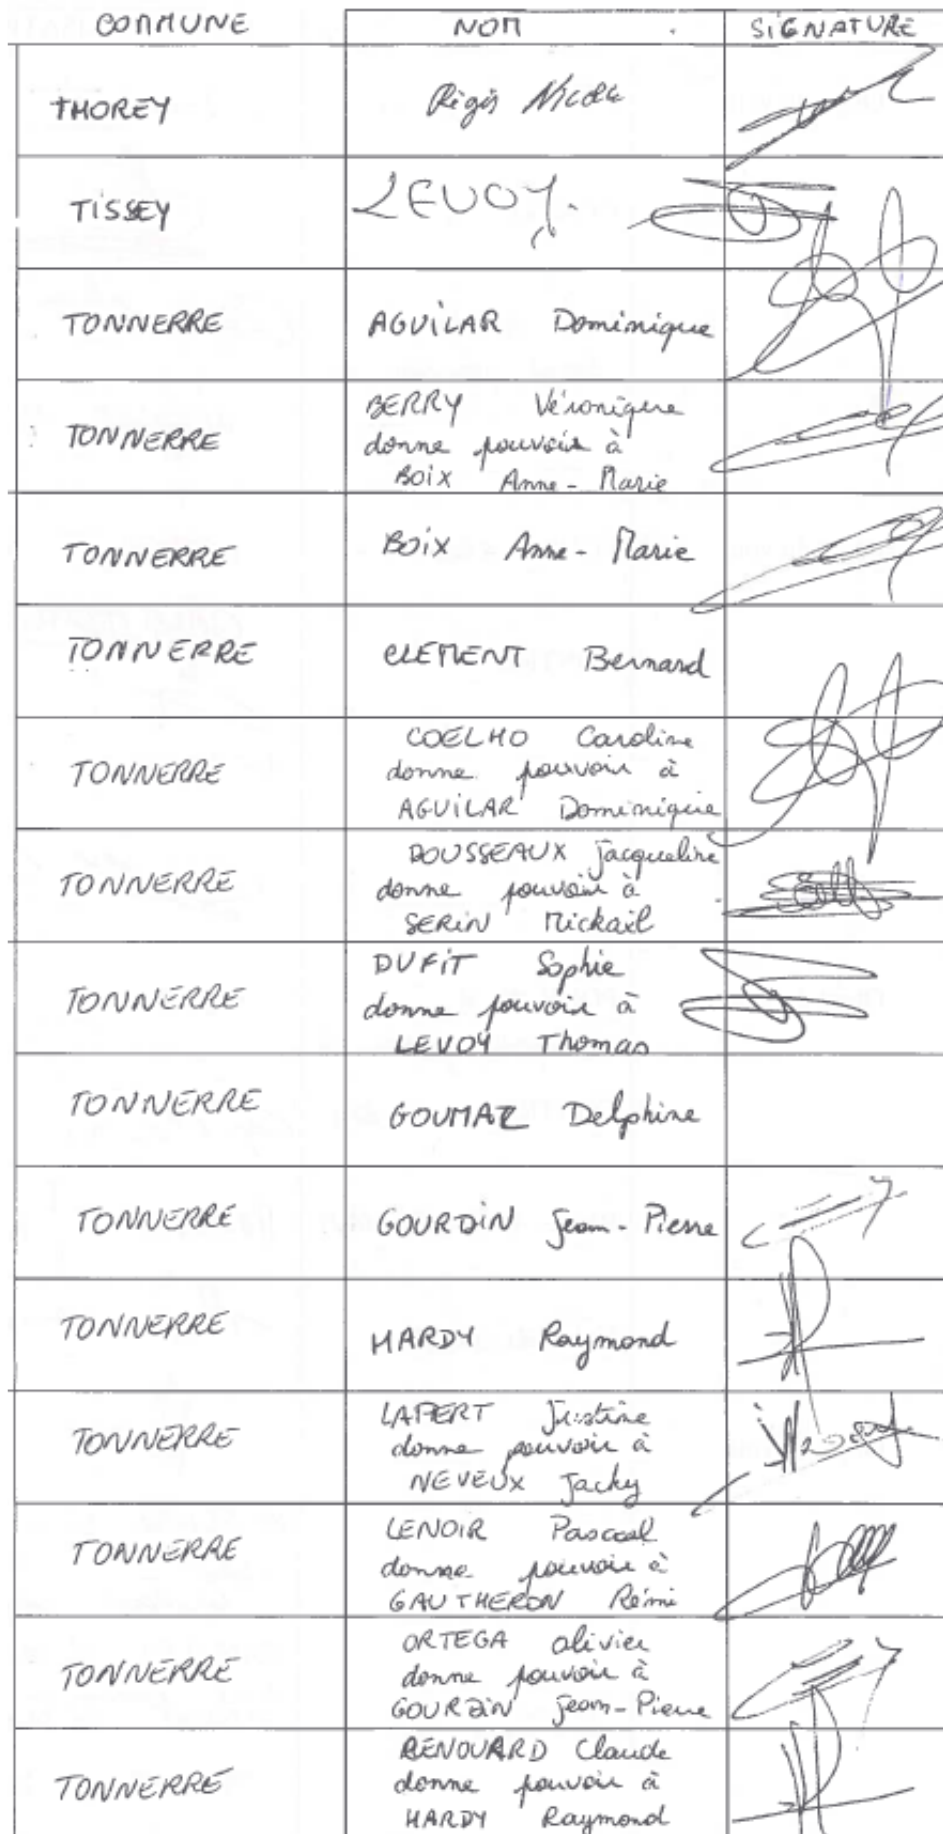 COMMUNE NOM SIGNATURE
THOREY Régis Nicole
TISSEY LEVOY
TONNERRE AGUILAR Dominique
TONNERRE BERRY Véronique
donne pouvoir à
BOIX Anne-Marie
TONNERRE BOIX Anne-Marie
TONNERRE CLEMENT Bernard
TONNERRE COELHO Caroline
donne pouvoir à
AGUILAR Dominique
TONNERRE DOUSSEAUX Jacqueline
donne pouvoir à
SERIN Mickaïl
TONNERRE DUFIT Sophie
donne pouvoir à
LEVOY Thomas
TONNERRE GOUMAZ Delphine
TONNERRE GOURDIN Jean-Pierre
TONNERRE HARDY Raymond
TONNERRE LAPERT Justine
donne pouvoir à
NEVEUX Jacky
TONNERRE LENOIR Pascal
donne pouvoir à
GAUTHERON Rémi
TONNERRE ORTEGA Olivier
donne pouvoir à
GOURDIN Jean-Pierre
TONNERRE RENOUARD Claude
donne pouvoir à
HARDY Raymond